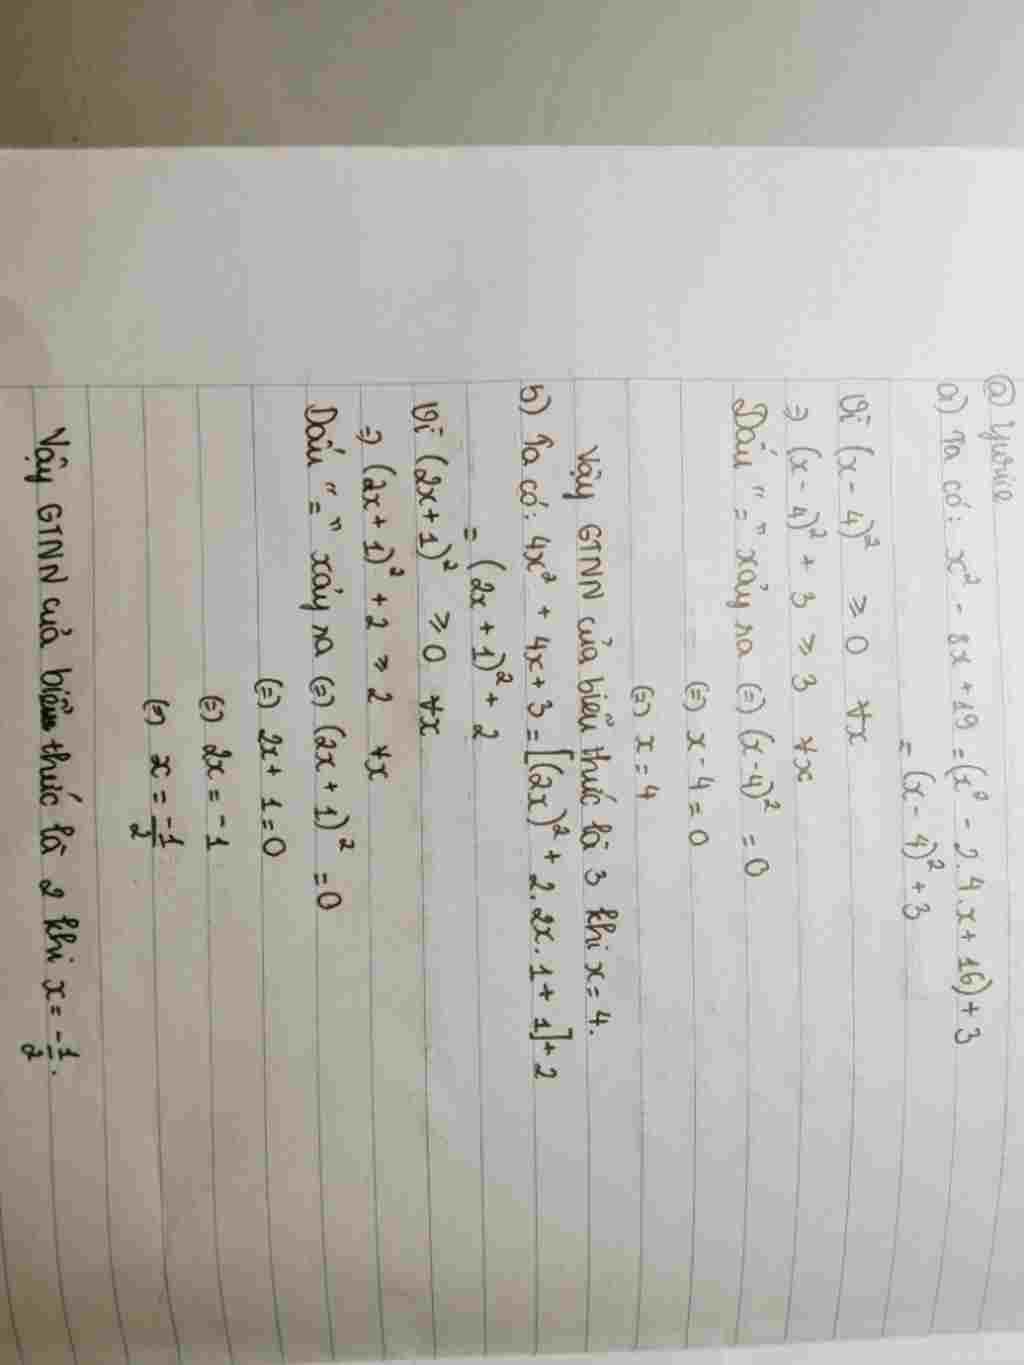 @ Yumie
a) Ta có: x² - 8x + 19 = (x² - 2.4.x + 16) + 3
= (x - 4)² + 3
Vì (x - 4)² ≥ 0 ∀x
⇒ (x - 4)² + 3 ≥ 3 ∀x
Dấu "=" xảy ra (=) (x - 4)² = 0
(=) x - 4 = 0
(=) x = 4
Vậy GTNN của biểu thức là 3 khi x = 4.
b) Ta có: 4x² + 4x + 3 = [(2x)² + 2.2x.1 + 1] + 2
= (2x + 1)² + 2
Vì (2x + 1)² ≥ 0 ∀x
⇒ (2x + 1)² + 2 ≥ 2 ∀x
Dấu "=" xảy ra (=) (2x + 1)² = 0
(=) 2x + 1 = 0
(=) 2x = -1
(=) x = -1/2
Vậy GTNN của biểu thức là 2 khi x = -1/2.